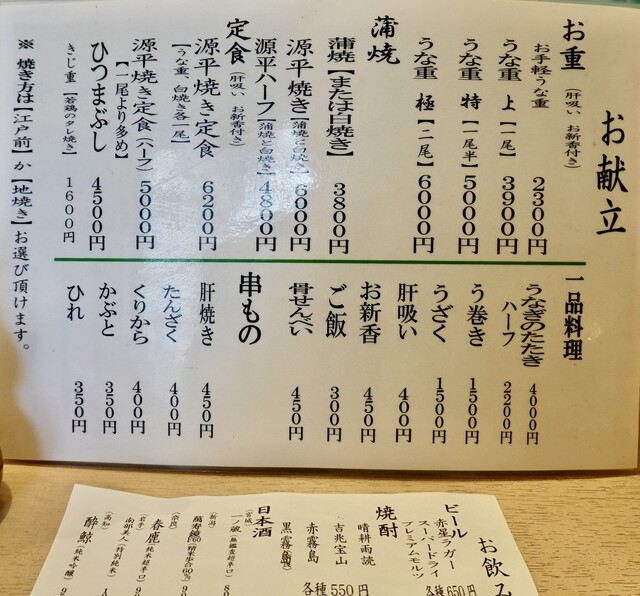 お献立
お重（肝吸い　お新香付き）
お手軽うな重　2300円
うな重　上【一尾】　3900円
うな重　特【一尾半】　5000円
うな重　極【二尾】　6000円
蒲焼
蒲焼【または白焼き】　3800円
源平焼き【蒲焼に白焼き】　6000円
源平ハーフ【蒲焼と白焼き】　4800円
定食（肝吸い　お新香付き）
源平焼き定食　6200円
【うな重、白焼き各一尾】
源平焼き定食（ハーフ）　5000円
【一尾より多め】
ひつまぶし　4500円
きじ重【若鶏のタレ焼き】　1600円
※ 焼き方は【江戸前】か【地焼き】お選び頂けます。
一品料理
うなぎのたたき　4000円
ハーフ　2200円
う巻き　1500円
うざく　1500円
肝吸い　400円
お新香　450円
ご飯　300円
骨せんべい　450円
串もの
肝焼き　450円
たんざく　400円
くりから　400円
かぶと　350円
ひれ　350円
お飲み
ビール
赤星ラガー
スーパードライ
プレミアムモルツ
各種650円
焼酎
晴耕雨読
吉兆宝山
赤霧島
黒霧島
各種550円
日本酒
（宮城）
一ノ蔵（無鑑査超辛口）
（新潟）
萬寿鏡F60（精米歩合60%）
（奈良）
春鹿（純米超辛口）
（岩手）
南部美人（特別純米）
（高知）
酔鯨（純米吟醸）